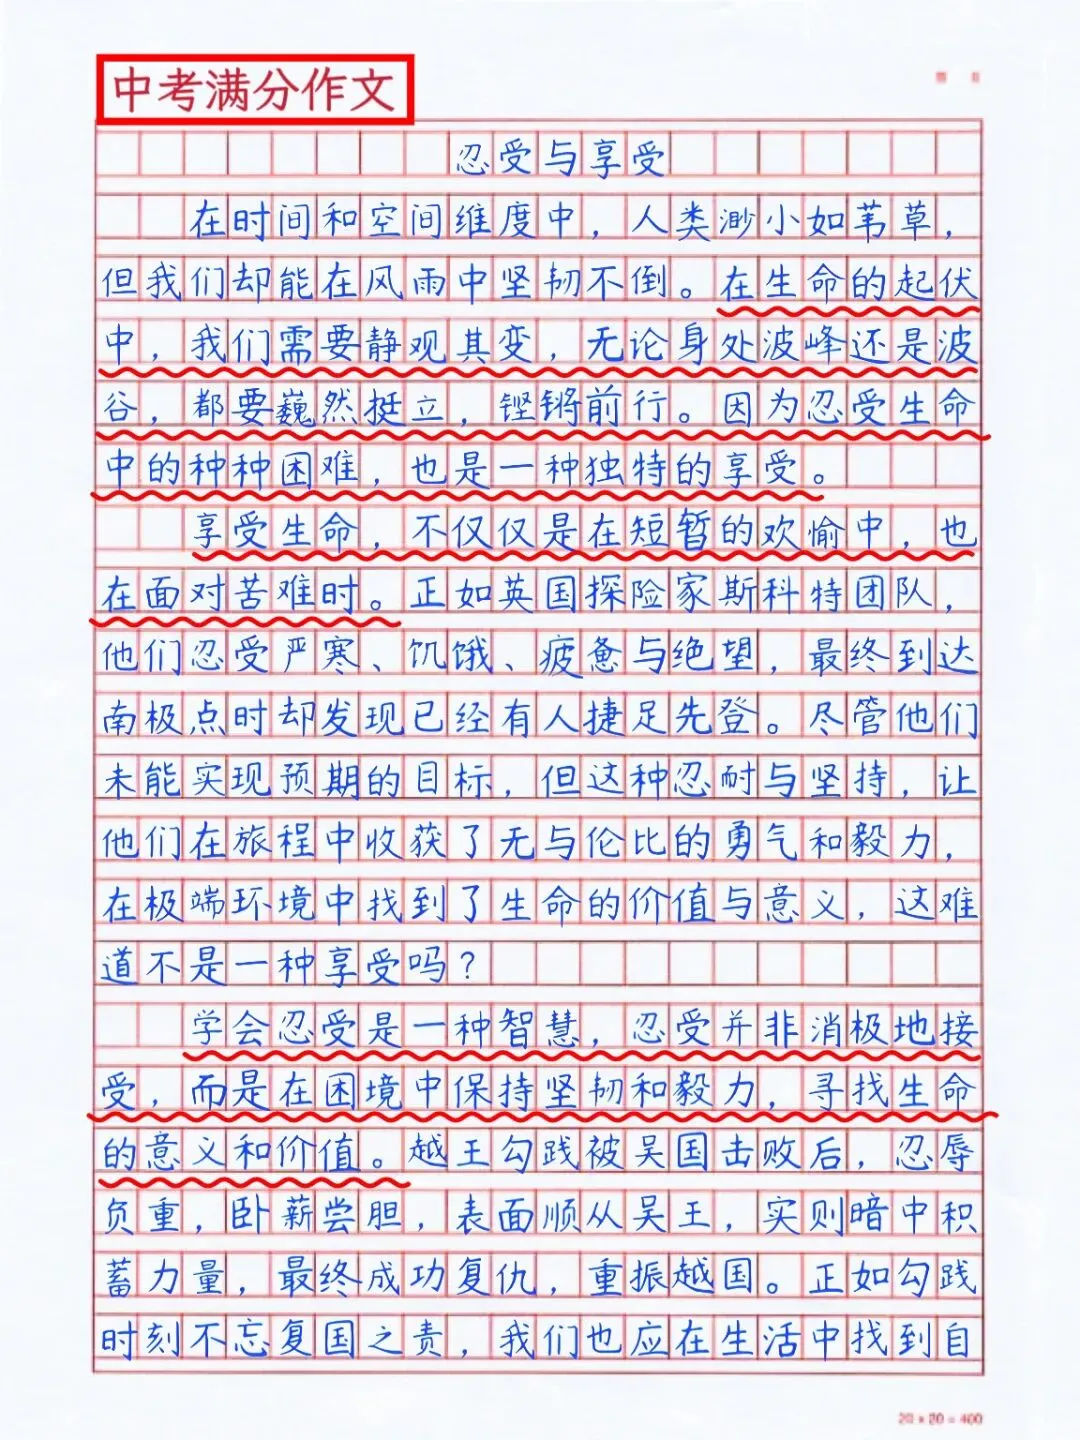 中考满分作文
忍受与享受
在时间和空间维度中，人类渺小如苇草，
但我们却能在风雨中坚韧不倒。在生命的起伏
中，我们需要静观其变，无论身处波峰还是波
谷，都要巍然挺立，铿锵前行。因为忍受生命
中的种种困难，也是一种独特的享受。
享受生命，不仅仅是在短暂的欢愉中，也
在面对苦难时。正如英国探险家斯科特团队，
他们忍受严寒、饥饿、疲惫与绝望，最终到达
南极点时却发现已经有人捷足先登。尽管他们
未能实现预期的目标，但这种忍耐与坚持，让
他们在旅程中收获了无与伦比的勇气和毅力，
在极端环境中找到了生命的价值与意义，这难
道不是一种享受吗？
学会忍受是一种智慧，忍受并非消极地接
受，而是在困境中保持坚韧和毅力，寻找生命
的意义和价值。越王勾践被吴国击败后，忍辱
负重，卧薪尝胆，表面顺从吴王，实则暗中积
蓄力量，最终成功复仇，重振越国。正如勾践
时刻不忘复国之责，我们也应在生活中找到自
20×20=400